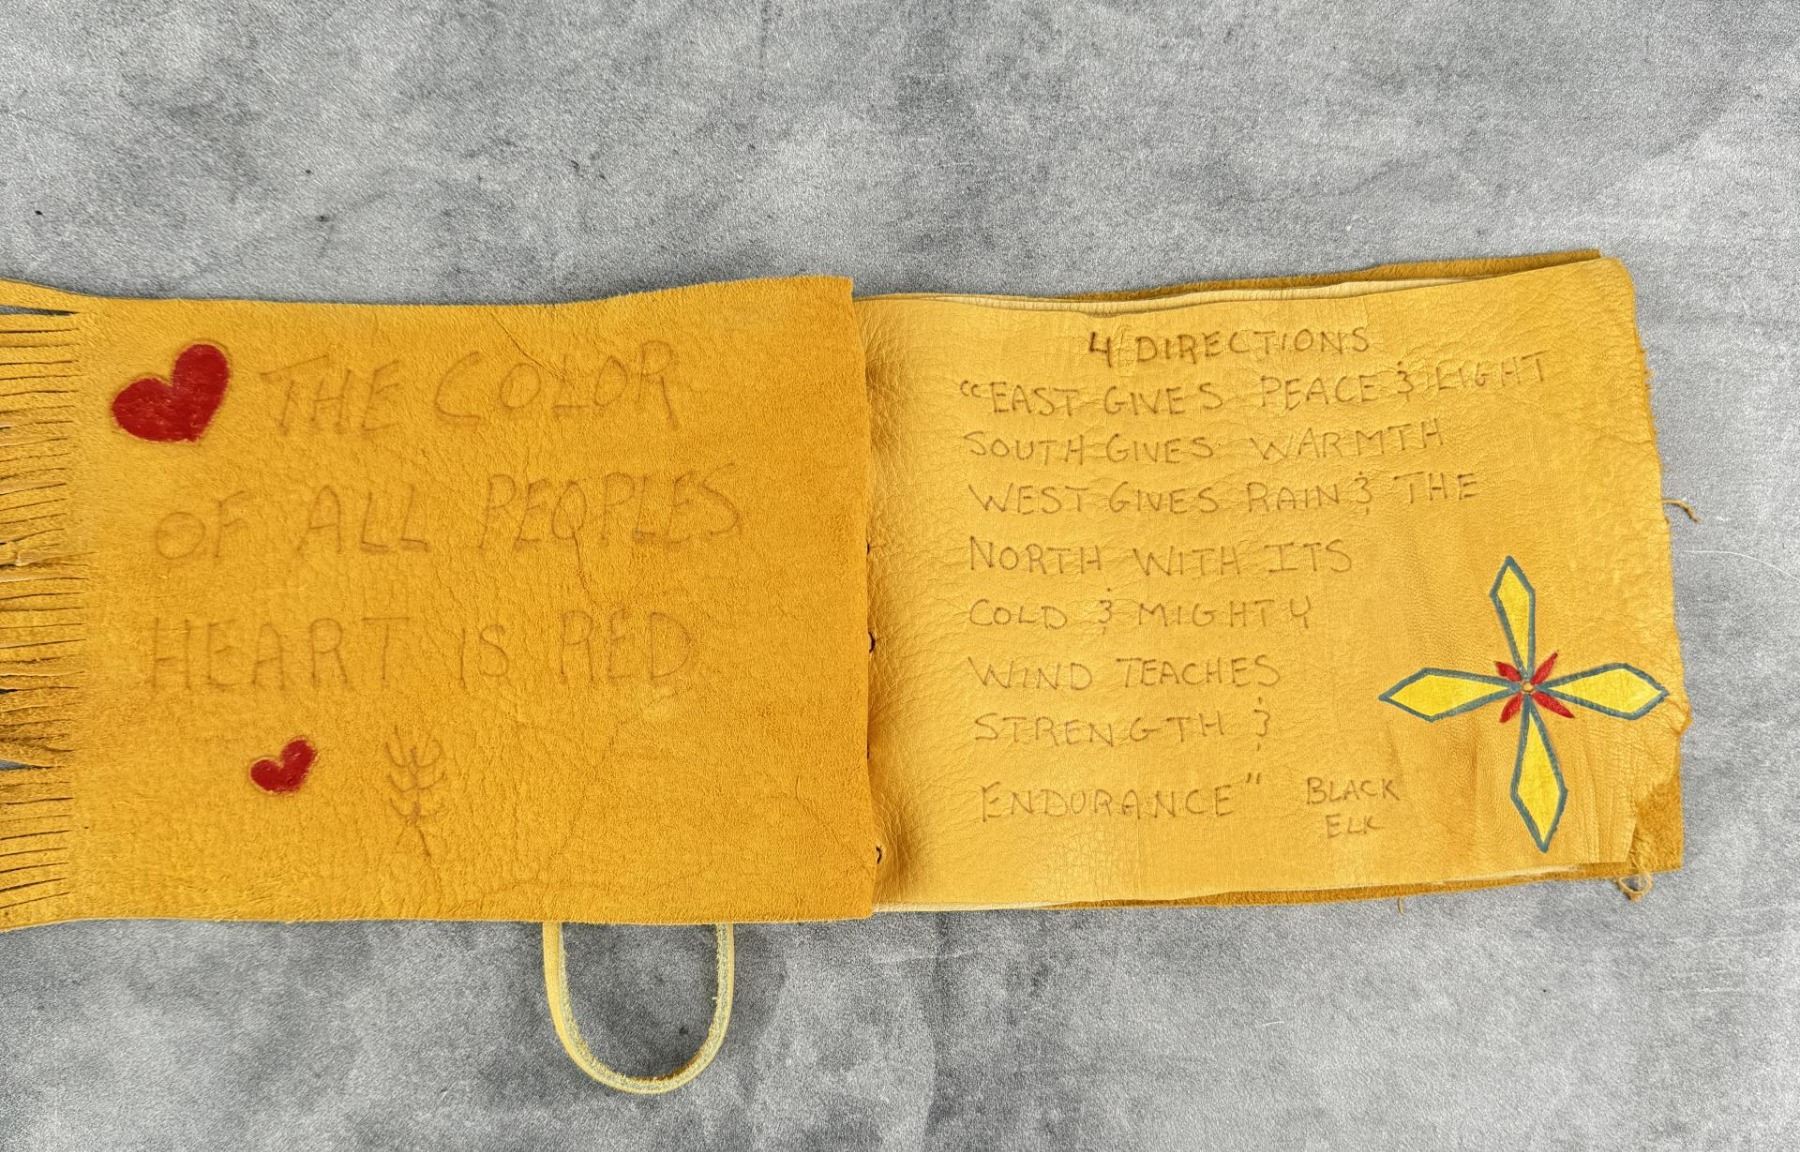 THE COLOR
OF ALL PEOPLES
HEART IS RED
4 DIRECTIONS
“EAST GIVES PEACE & LIGHT
SOUTH GIVES WARMTH
WEST GIVES RAIN & THE
NORTH WITH ITS
COLD & MIGHTY
WIND TEACHES
STRENGTH &
ENDURANCE” BLACK
ELK